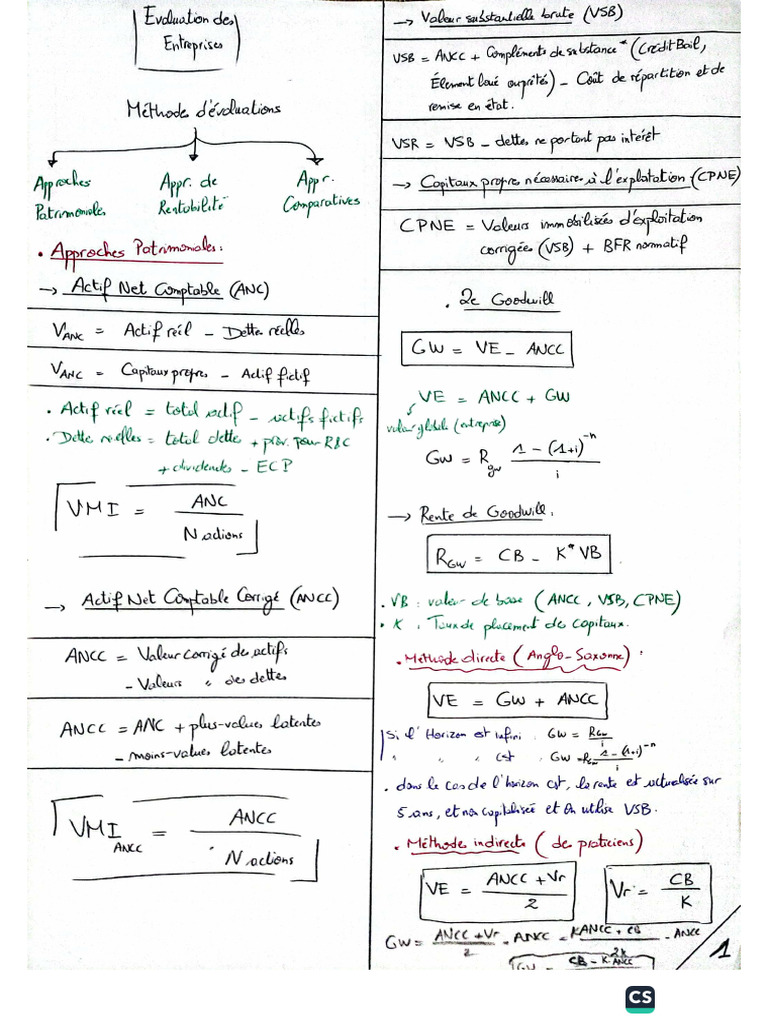 Evaluation des
Entreprises
Méthode d'évaluations
Approches
Patrimoniales
Appr. de
Rentabilité
Appr.
Comparatives
• Approches Patrimoniales :
→ Actif Net Comptable (ANC)
V_ANC = Actif réel - Dettes réelles
V_ANC = Capitaux propres - Actif fictif
• Actif réel = total actif - actifs fictifs
• Dette réelles = total dette + prov. pour R&C
+ dividendes - ECP
VMI = ANC / N actions
→ Actif Net Comptable Corrigé (ANCC)
ANCC = Valeur corrigé des actifs
- Valeurs " des dettes
ANCC = ANC + plus-values latentes
- moins-values latentes
VMI_ANCC = ANCC / N actions
→ Valeur substantielle brute (VSB)
VSB = ANCC + Compléments de substance* (Crédit Bail,
Élement loué ou prêtés) - Coût de répartition et de
remise en état.
VSR = VSB - dettes ne portant pas intérêt
→ Capitaux propres nécessaires à l'exploitation (CPNE)
CPNE = Valeurs immobilisées d'exploitation
corrigées (VSB) + BFR normatif
• Le Goodwill
GW = VE - ANCC
VE = ANCC + GW
valeur globale (entreprise)
GW = R_gw (1 - (1+i)^-n) / i
→ Rente de Goodwill :
R_GW = CB - K * VB
• VB : valeur de base (ANCC, VSB, CPNE)
• K : Taux de placement des capitaux.
• Méthode directe (Anglo-Saxonne) :
VE = GW + ANCC
Si l'Horizon est infini : GW = R_GW / i
" " " cst, GW = R_GW (1 - (1+i)^-n) / i
• dans le cas de l'horizon cst, la rente est actualisée sur
5 ans, et non capitalisée et on utilise VSB.
• Méthode indirecte (des praticiens)
VE = (ANCC + Vr) / 2
Vr = CB / K
GW = (ANCC + Vr) / 2 - ANCC = (KANCC + CB) / 2K - ANCC
GW = CB - K.ANCC
1
CS